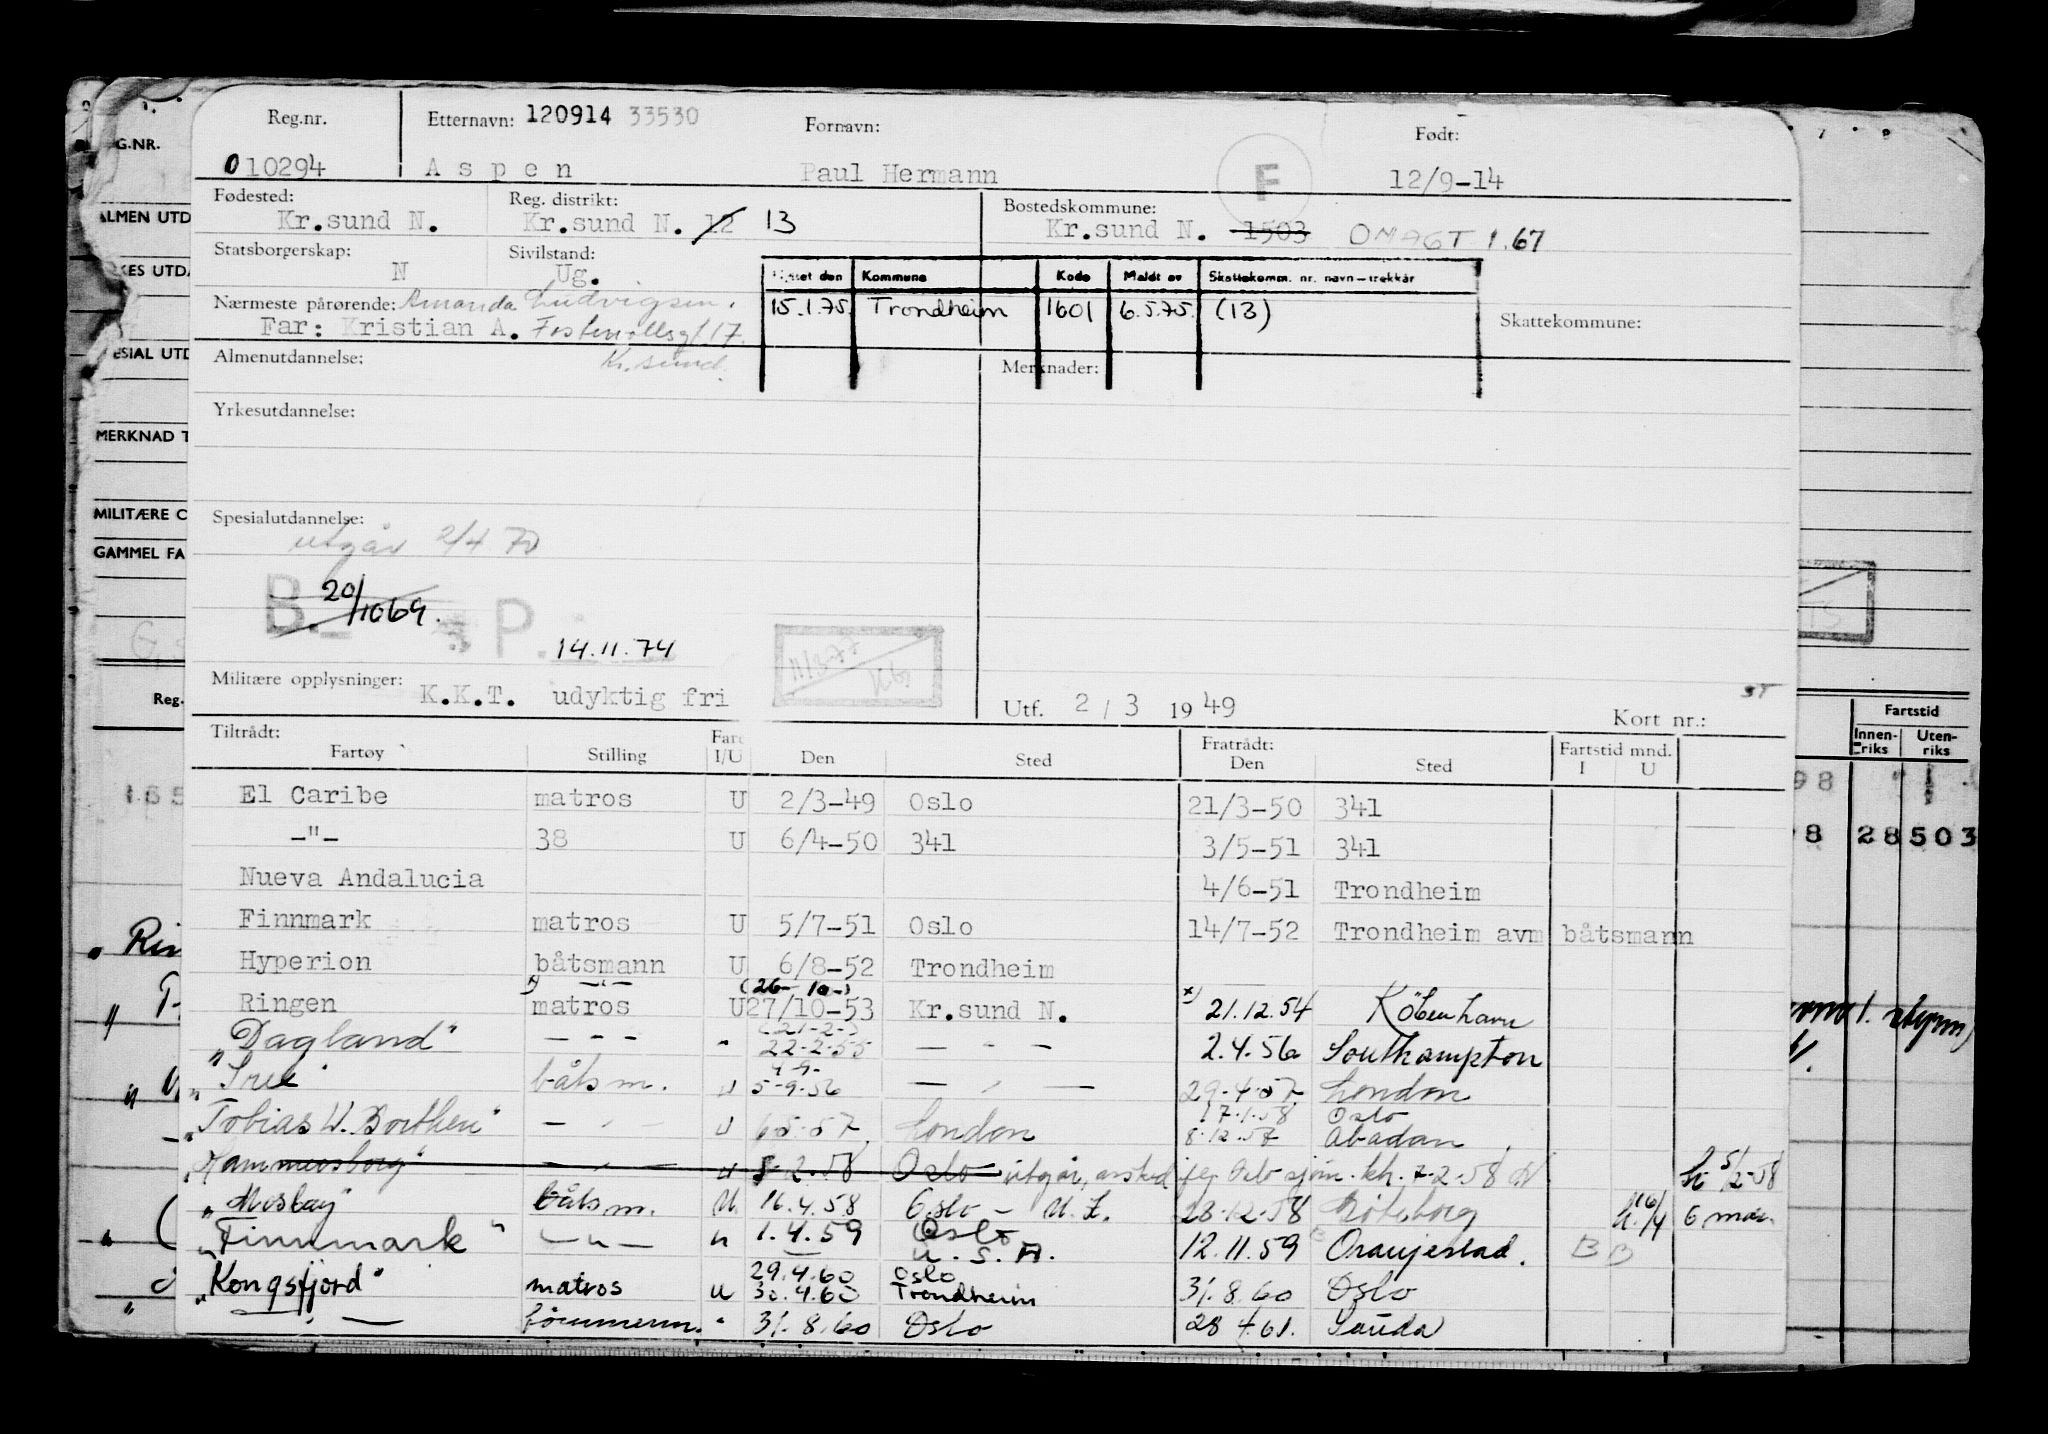 Reg.nr. Etternavn: 120914 33530 Fornavn: Født:
010294 Aspen Paul Hermann F 12/9-14
Fødested: Reg. distrikt: Bostedskommune:
Kr.sund N. Kr.sund N. 12 13 Kr.sund N. 1503 OMAGT 1.67
Statsborgerskap: Sivilstand:
N Ug.
den Kommune Kode Meldt av Skattekomm. nr. navn-trekkår
Nærmeste pårørende: Amanda Ludvigsen.
15.1.75. Trondheim 1601 6.5.75. (13)
Far: Kristian A. Skattekommune:
Kr. sund.
Almenutdannelse: Merknader:
Yrkesutdannelse:
Spesialutdannelse:
utgår 2/4 70
B. 20/1069. P. 14.11.74
11/3-77
Militære opplysninger: K.K.T. udyktig fri
Utf. 2/3 1949 Kort nr.:
Tiltrådt: Fratrådt: Fartstid mnd.
Fartøy Stilling I/U Den Sted Den Sted I U
El Caribe matros U 2/3-49 Oslo 21/3-50 341
-"- 38 U 6/4-50 341 3/5-51 341
Nueva Andalucia 4/6-51 Trondheim
Finnmark matros U 5/7-51 Oslo 14/7-52 Trondheim avm båtsmann
Hyperion båtsmann U 6/8-52 Trondheim
(26- 10-)
Ringen matros U 27/10-53 Kr.sund N. x) 21.12.54 København
(21-2-)
"Dagland" - - - " 22-2-55 - - - 2.4.56 Southampton
4-9-
båtsm. u 5-9-56 - " - 29.4.57. London
17.1.58 Oslo
"Tobias U. Borthen" - " - u 6.5.57 London 8.12.57 Abadan
"Hammersborg" - " - u 8-2.58 Oslo utgår, 7-2-58
"Moslay" båtsm. U. 16.4.58 Oslo - 28-12-58 Göteborg 6 mdr.
"Finnmark" -"- u 1.4.59 Oslo
U.S.A. 12.11.59 Oranjestad. B B
29.4.60 Oslo
"Kongsfjord" matros u 30.4.60 Trondheim 31.8.60 Oslo
- tömmerm. " 31.8.60 Oslo 28 4.61. Sauda
G.NR.
ALMEN UTD
KES UTDA
ESIAL UTD
MERKNAD T
MILITÆRE O
GAMMEL FA
Reg.
Fartstid
Innen-riks Uten-riks
98
28503